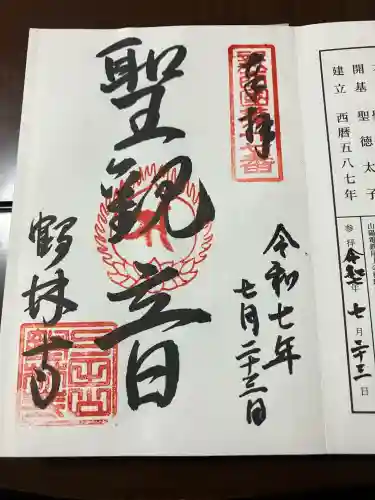 開基 聖徳太子
建立 西暦五八七年
参拝 令和七年 七月 二十三日
奉拝
令和七年
七月二十三日
聖観音
鶴林寺